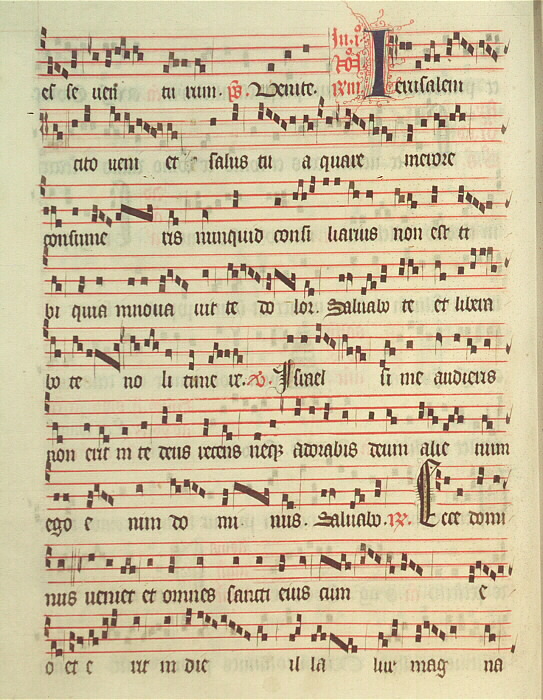 es se uen tu rum. ps. Venite. Jerusalem
cito ueni et salus tu a quare merore
consume ris nunquid consi liarius non est ti
bi quia innoua uit te do lor. Saluabo te et libera
bo te no li time re. V. Israel si me audieris
non erit in te deus recens neq; adorabis deum alie num
ego e nim do mi nus. Saluabo. R. Ecce domi
nus ueniet et omnes sancti eius cum e
o et e rit in die il la lux mag na